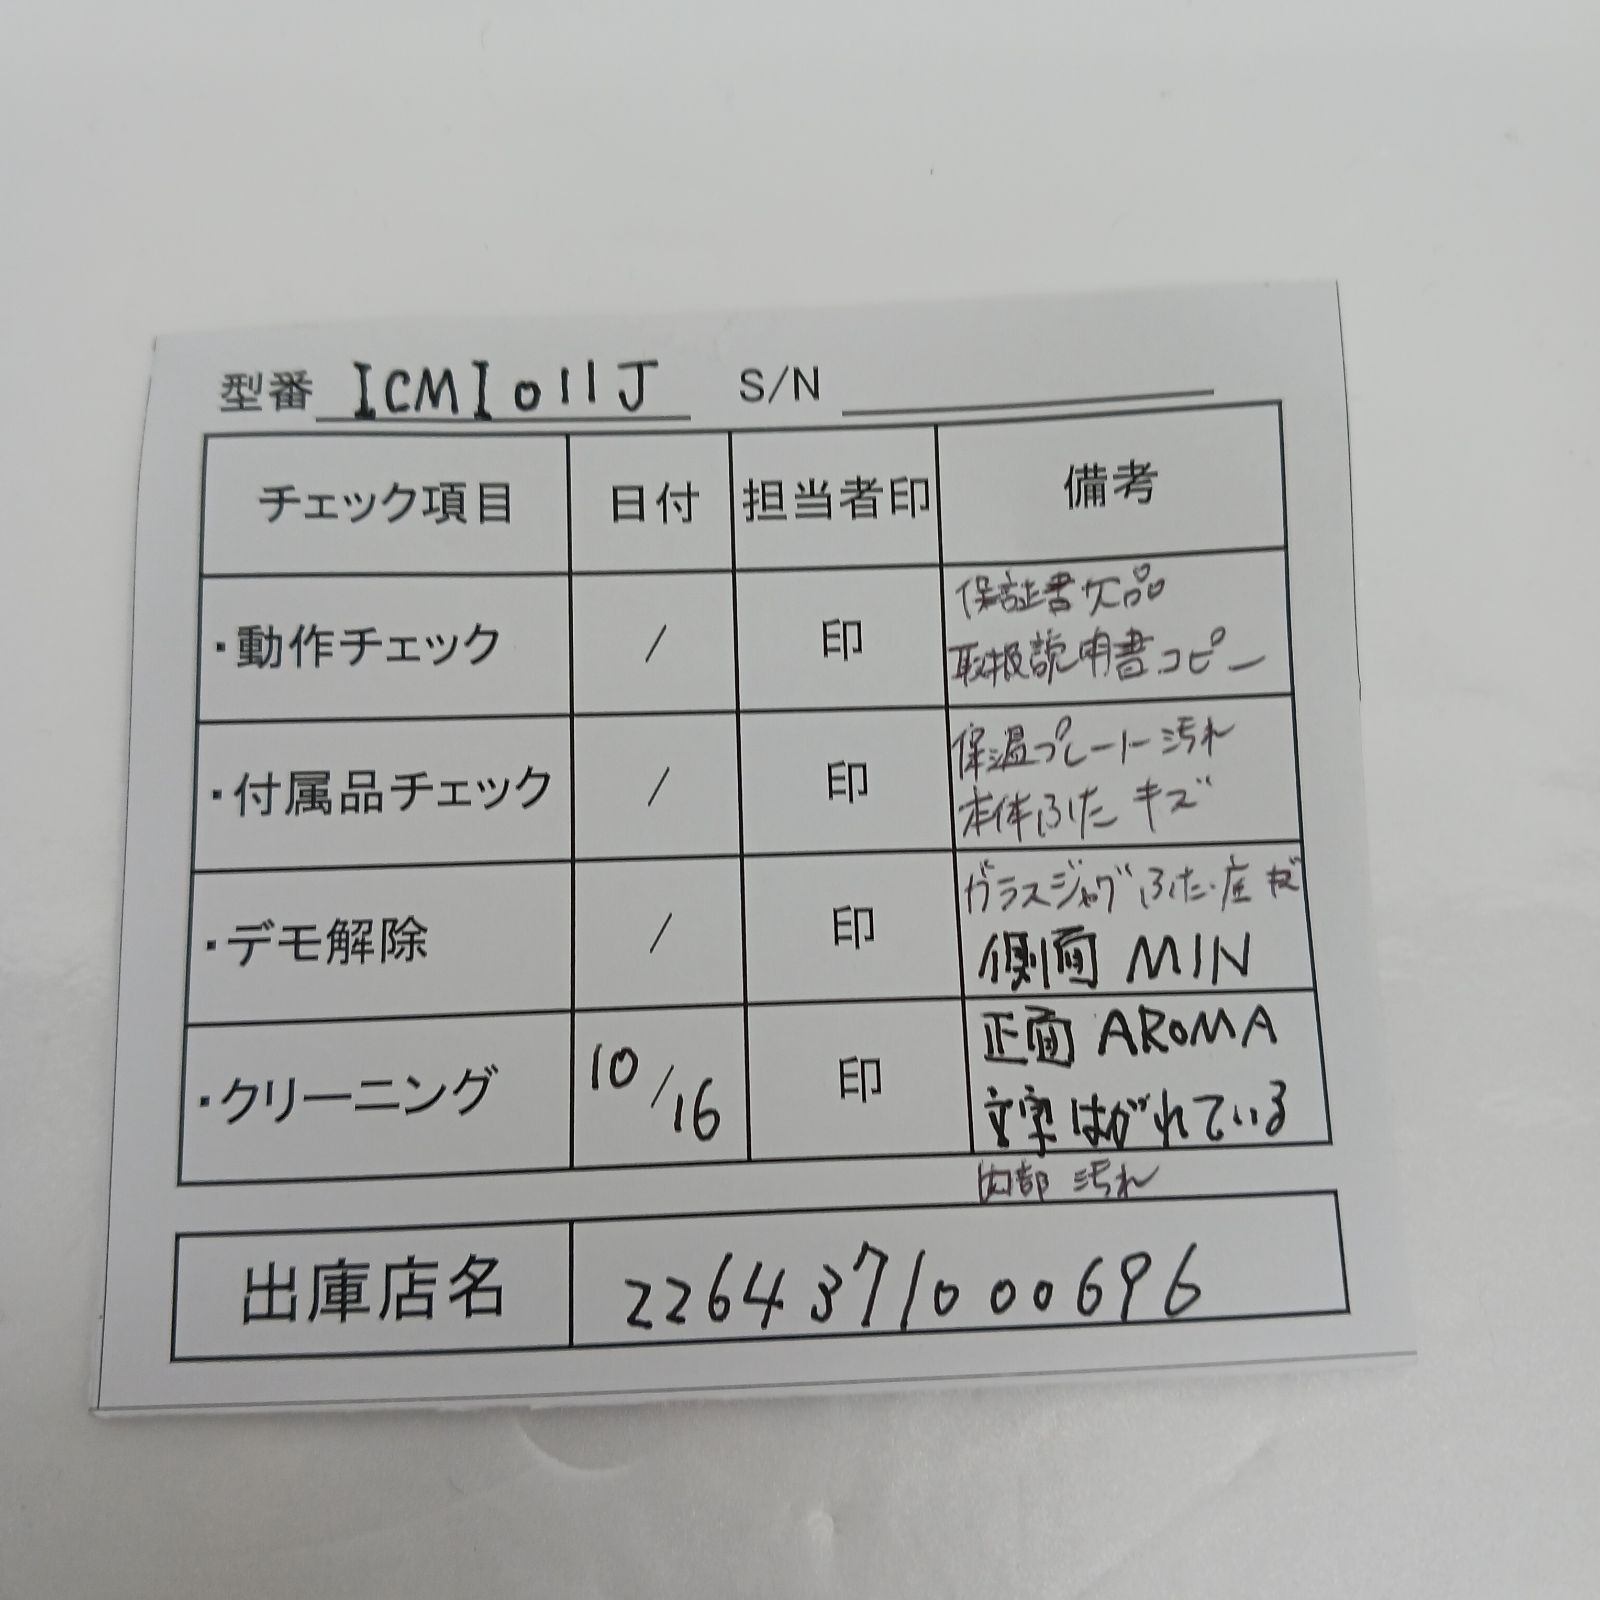 型番 ICMI011J S/N
チェック項目 日付 担当者印 備考
・動作チェック / 印 保証書欠品
取扱説明書コピー
・付属品チェック / 印 保温プレート汚れ
本体ふたキズ
・デモ解除 / 印 ガラスジャグふた・底キズ
側面 MIN
・クリーニング 10/16 印 正面 AROMA
文字はがれている
内部 汚れ
出庫店名 2264371000696